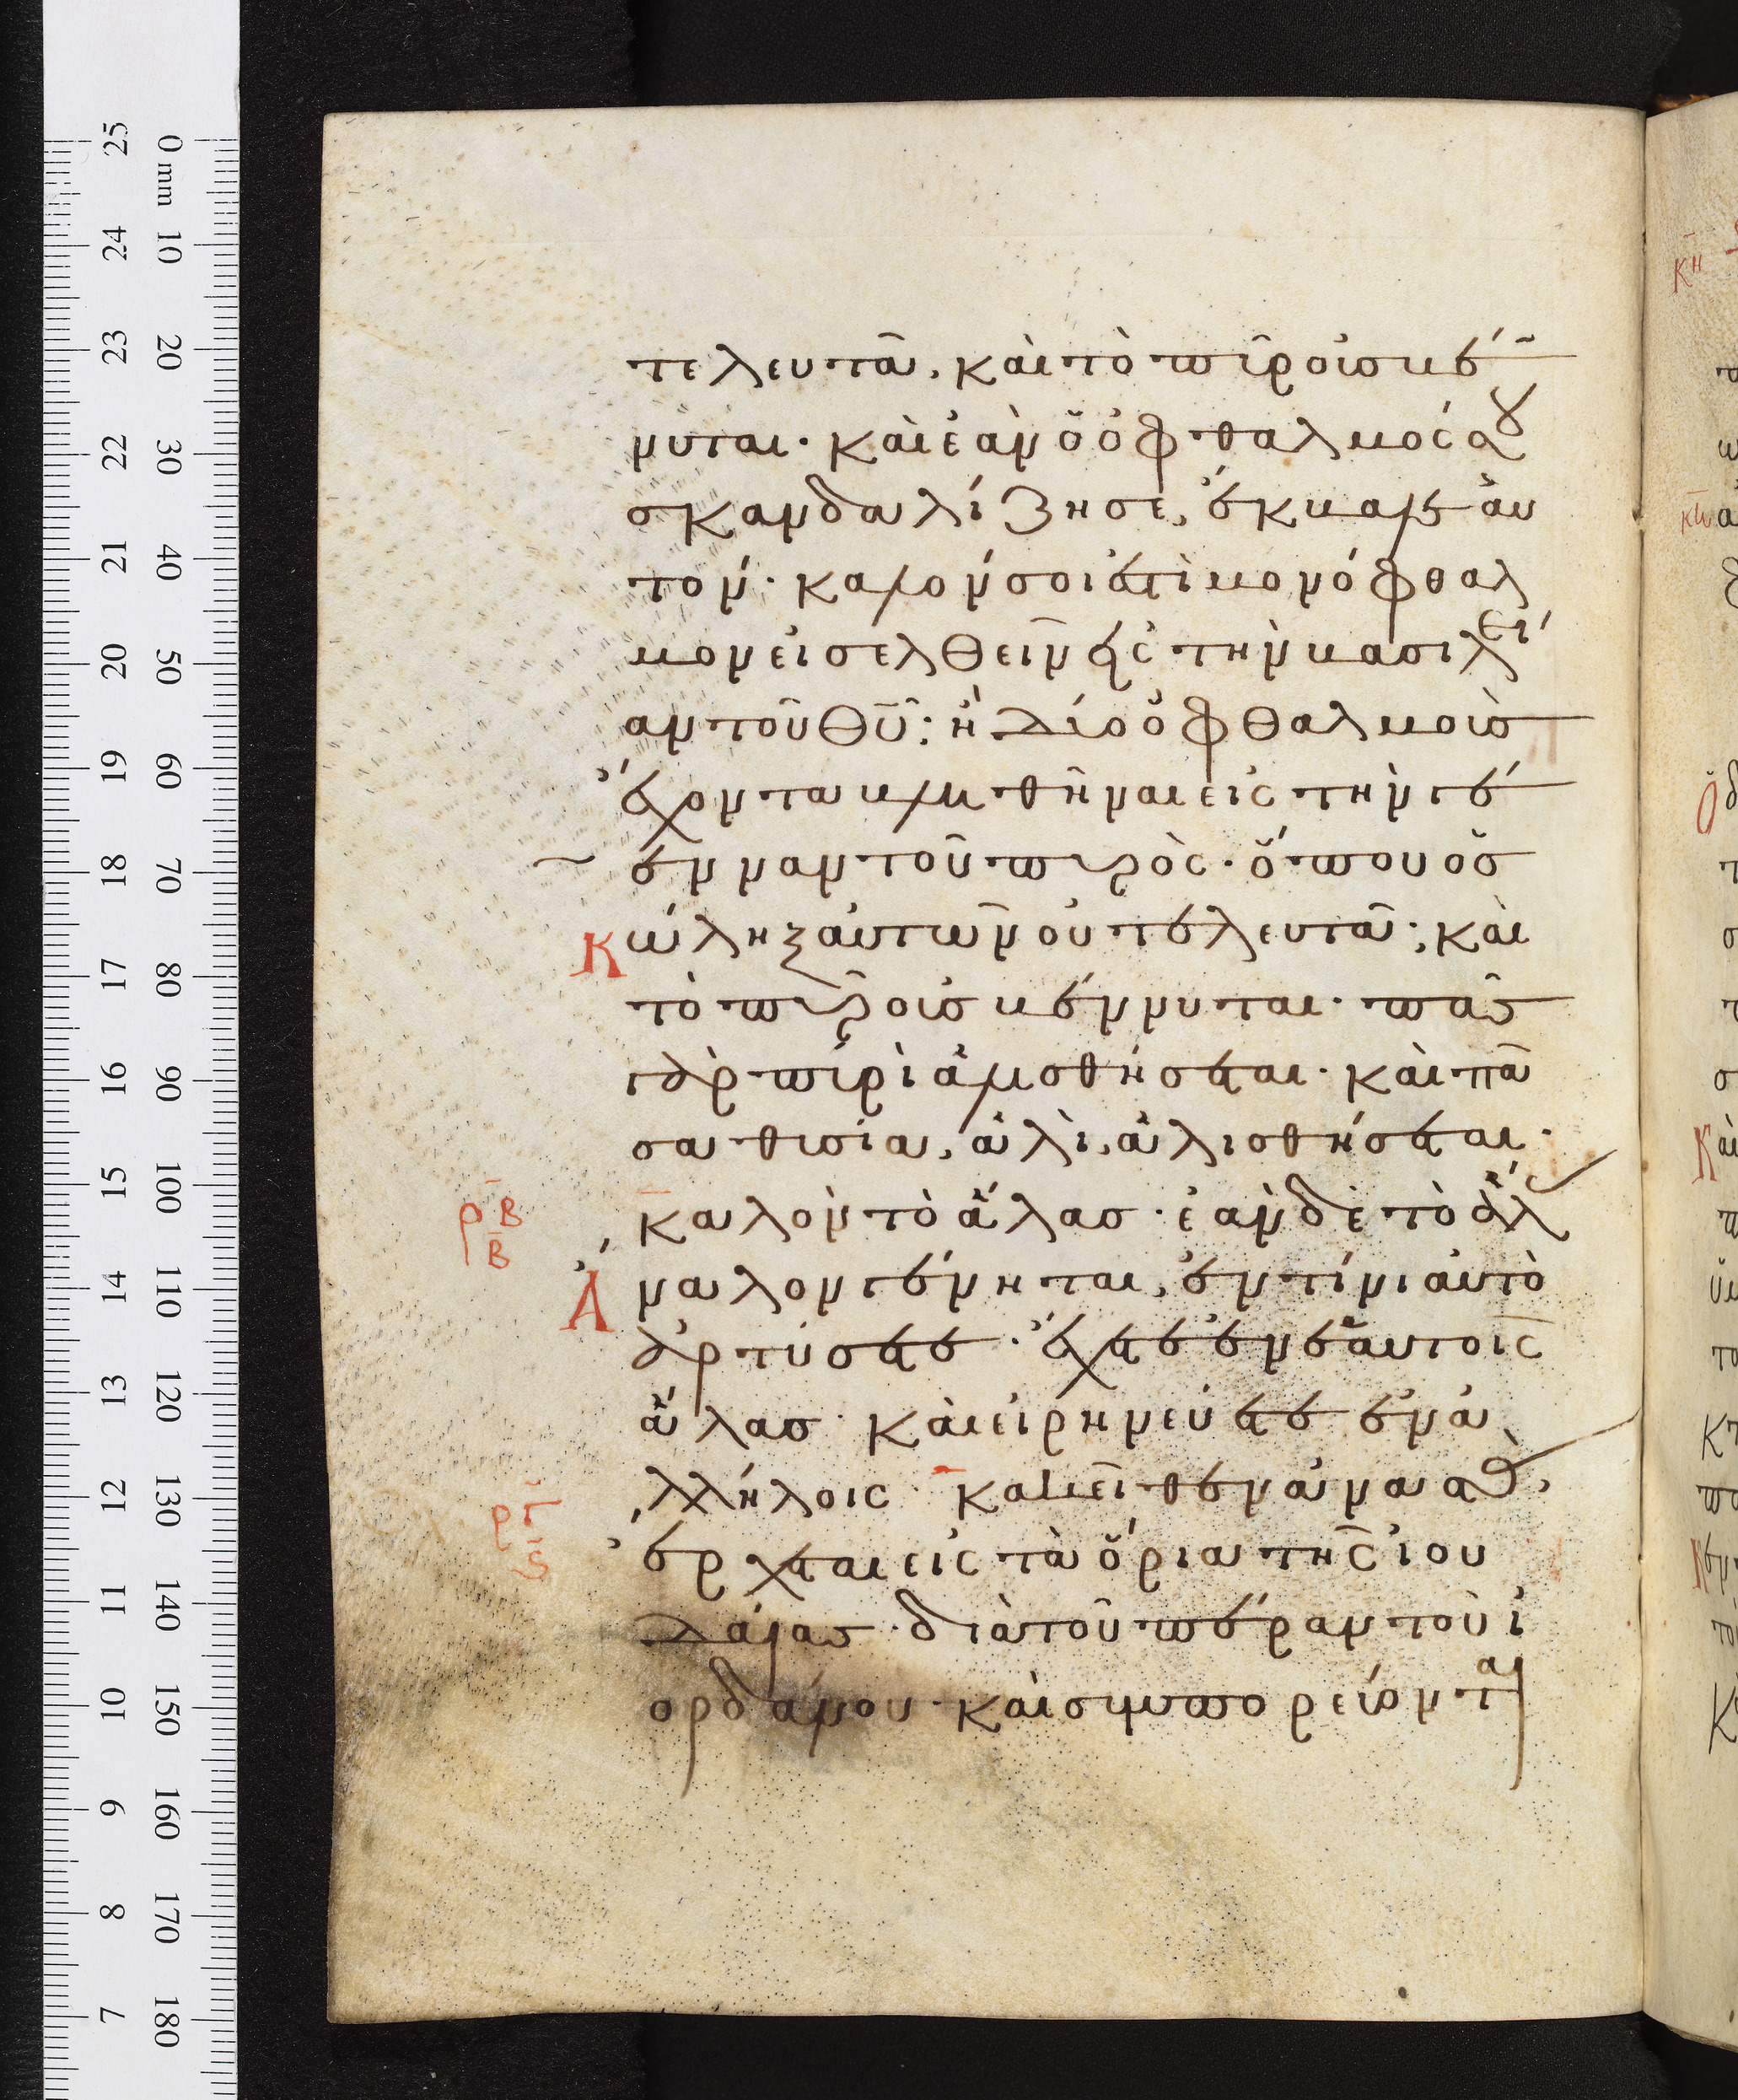 τελευτᾶ, καὶ τὸ πῦρ οὐ σβέ̅
νυται· καὶ ἐὰν ὁ ὀφθαλμός σου
σκανδαλίζη σε, ἔκβαλε αὐ
τόν· καλόν σοι ἐστὶ μονόφθαλ
μον εἰσελθεῖν εἰς τὴν βασιλεί
αν τοῦ θυ̅: ἢ δύο ὀφθαλμοὺς
ἔχοντα βληθῆναι εἰς τὴν γέ
ενναν τοῦ πυρός· ὅπου ὁ σ
Κώληξ αὐτῶν οὐ τελευτᾶ· καὶ
τὸ πῦρ οὐ σβέννυται· πᾶς
γὰρ πυρὶ ἁλισθήσεται· καὶ πᾶ
σα θυσία, ἁλὶ, ἁλισθήσεται·
ρβ
β
καλὸν τὸ ἅλας· ἐὰν δὲ τὸ ἅλας
Ἄναλον γένηται, ἐν τίνι αὐτὸ
ἀρτύσετε· ἔχετε ἐν ἑαυτοῖς
ἅλας· καὶ εἰρηνεύετε ἐν ἀ
λλήλοις· κακεῖθεν ἀναστὰς
ργ
ς
ἔρχεται εἰς τὰ ὅρια τῆς ἰου
δαίας· διὰ τοῦ πέραν τοῦ ἰ
ορδάνου· καὶ συνπορεύονται
0 mm 10 20 30 40 50 60 70 80 90 100 110 120 130 140 150 160 170 180
25 24 23 22 21 20 19 18 17 16 15 14 13 12 11 10 9 8 7